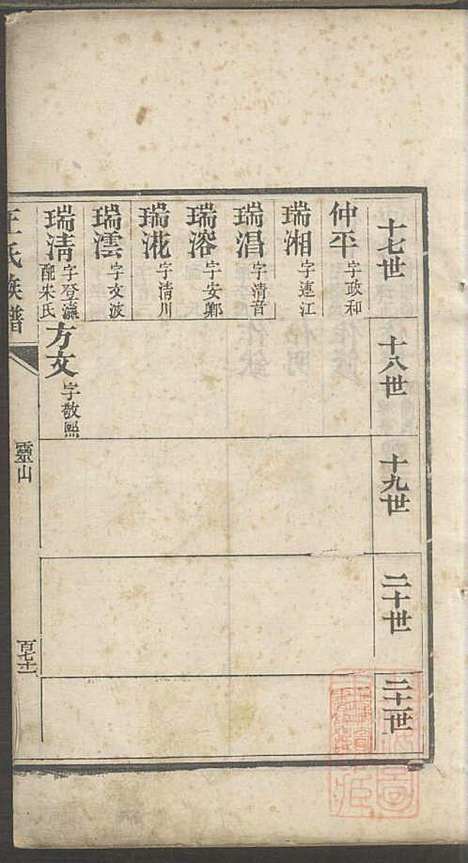 十七世
仲平 字政和
瑞湘 字連江
瑞淐 字清音
瑞溶 字安鄉
瑞淞 字清川
瑞澐 字文波
瑞清 字登瀛 配宋氏
十八世
方文 字敬熙
十九世
二十世
二十一世
王氏族譜
靈山